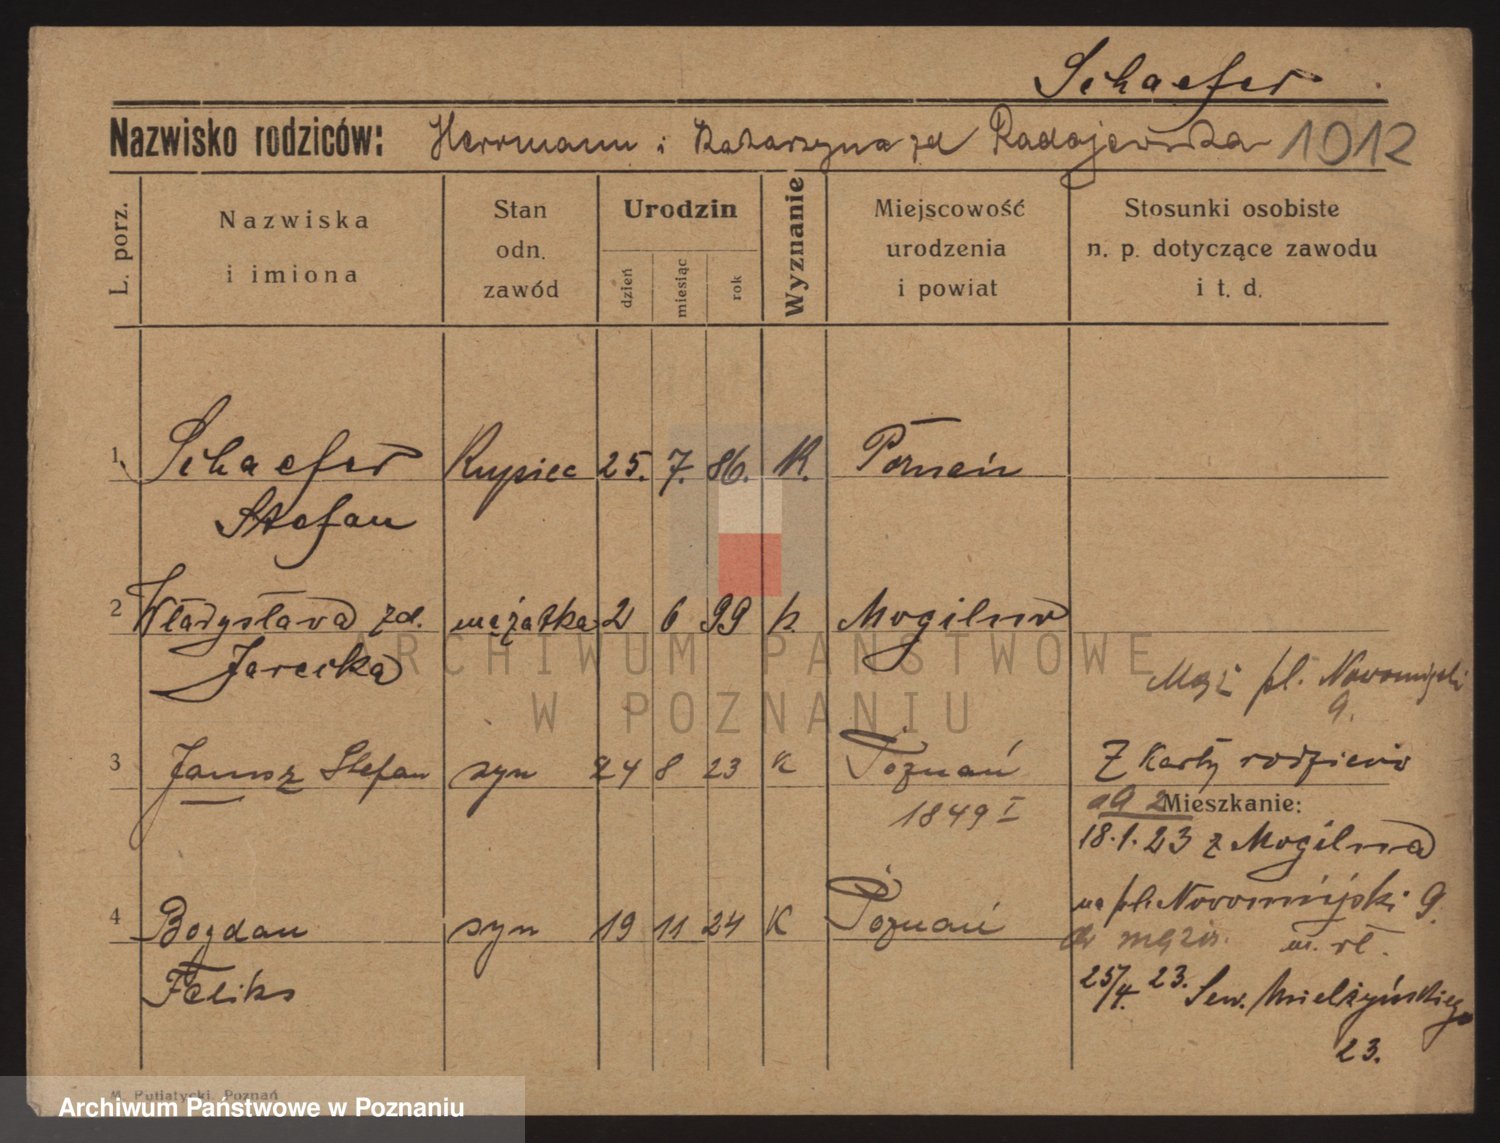 Schaefer
Nazwisko rodziców: Herrmann i Katarzyna zd Radojewska 1912
L. porz.
Nazwiska i imiona
Stan odn. zawód
Urodzin
dzień
miesiąc
rok
Wyznanie
Miejscowość urodzenia i powiat
Stosunki osobiste n. p. dotyczące zawodu i t. d.
1. Schaefer Kupiec 25. 7. 86. K. Poznań
Stefan
2 Władysława zd. mężatka 2 6 99 k. Mogilno
Jarecka
ARCHIWUM PAŃSTWOWE
W POZNANIU
Mąż pl. Nowomiejski
9.
3 Janusz Stefan syn 24 8 23 K Poznań Z Karty rodziców
1849 I
Mieszkanie:
18.1.23 z Mogilna
na pl. Nowomiejski 9.
4 Bogdan syn 19 11 24 K Poznań
do męża. m. rł.
Feliks
25/4. 23. Sew. Mielżyńskiego
23.
M. Putiatycki, Poznań
Archiwum Państwowe w Poznaniu